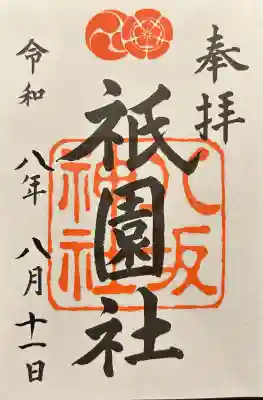 奉拝
祇園社
八坂神社
令和八年八月十一日